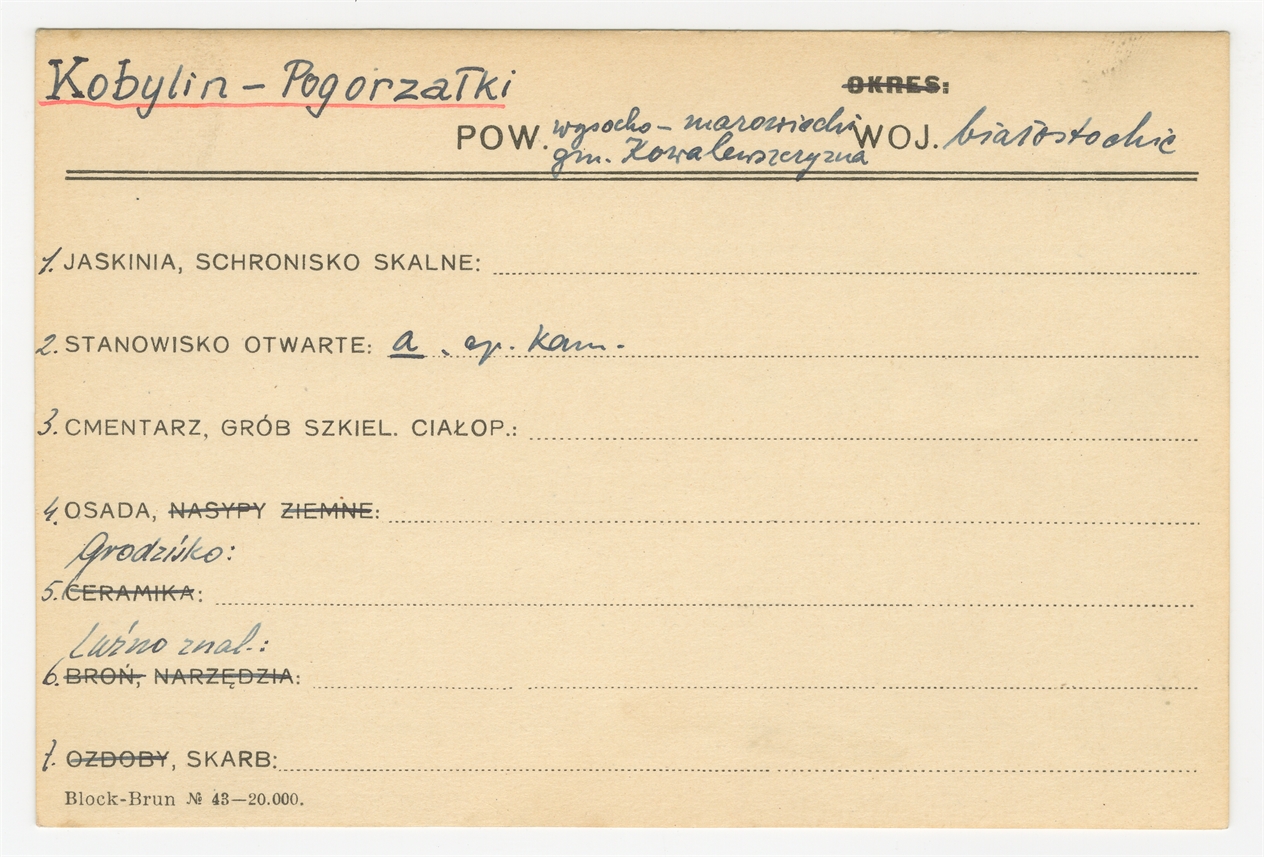 Kobylin – Pogorzałki
OKRES:
POW. wysocko – mazowiecki WOJ. białostockie
gm. Kowalewszczyzna
1. JASKINIA, SCHRONISKO SKALNE:
2. STANOWISKO OTWARTE: a, ep. kam.
3. CMENTARZ, GRÓB SZKIEL. CIAŁOP.:
4. OSADA, NASYPY ZIEMNE:
Grodzisko:
5. CERAMIKA:
Luźno znal.:
6. BROŃ, NARZĘDZIA:
7. OZDOBY, SKARB:
Block-Brun № 43—20.000.